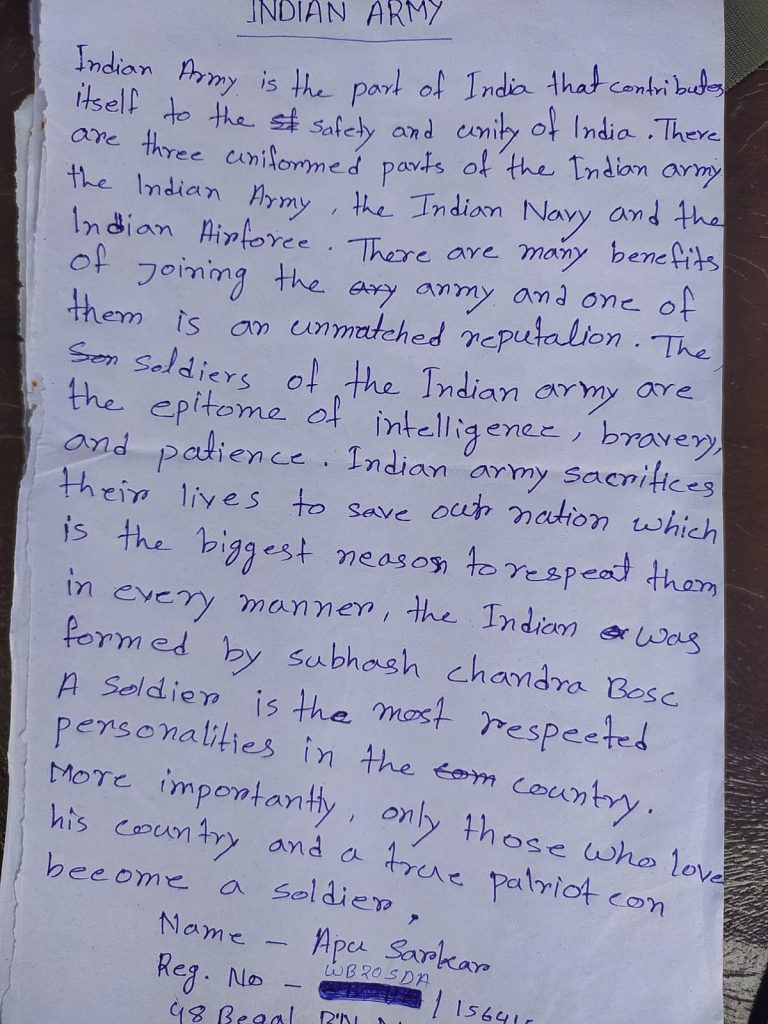 INDIAN ARMY
Indian Army is the part of India that contributes
itself to the st safety and unity of India. There
are three uniformed parts of the Indian army
the Indian Army, the Indian Navy and the
Indian Airforce. There are many benefits
of Joining the ary army and one of
them is an unmatched reputation. The
Son Soldiers of the Indian army are
the epitome of intelligence, bravery,
and patience. Indian army sacrifices
their lives to save our nation which
is the biggest reason to respeat them
in every manner, the Indian a was
formed by subhash chandra Bose
A Soldier is the most respected
personalities in the com country.
More importantly, only those who love
his country and a true patriot can
become a soldier.
Name - Apu Sarkar
Reg. No - WB20SDA / 156415
48 Begal B'N N